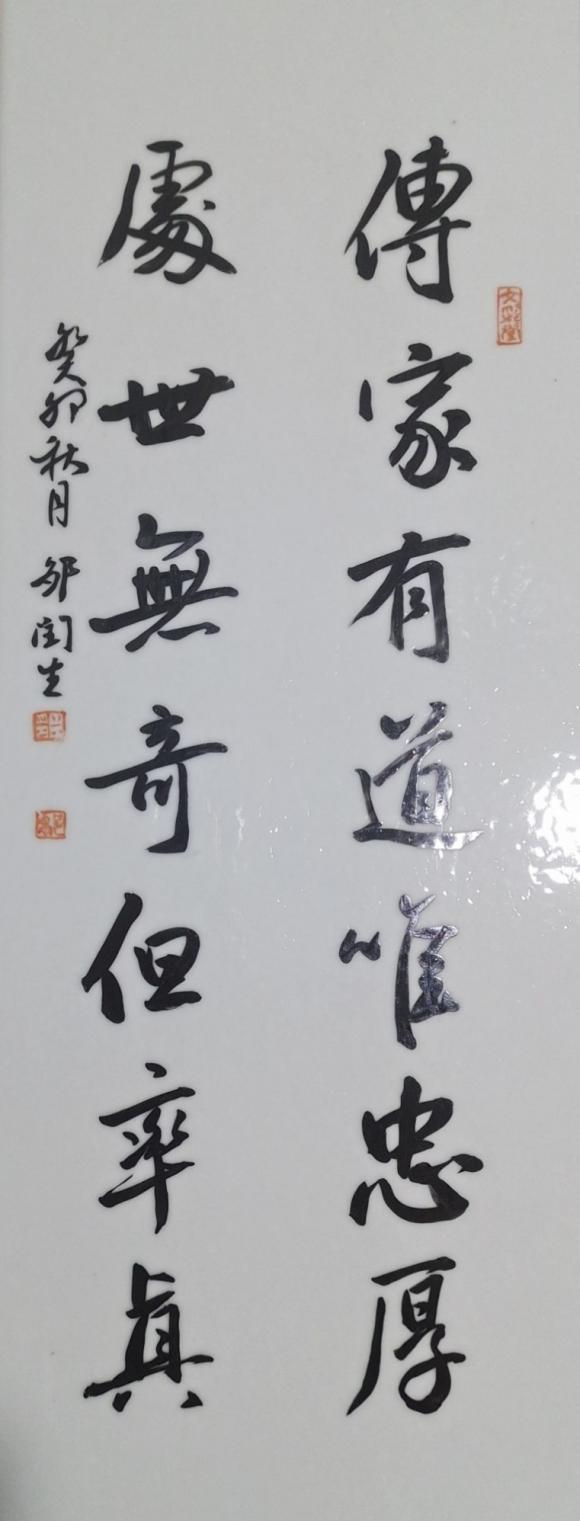 傳家有道唯忠厚
處世無奇但率真
癸卯秋月 邹閏生